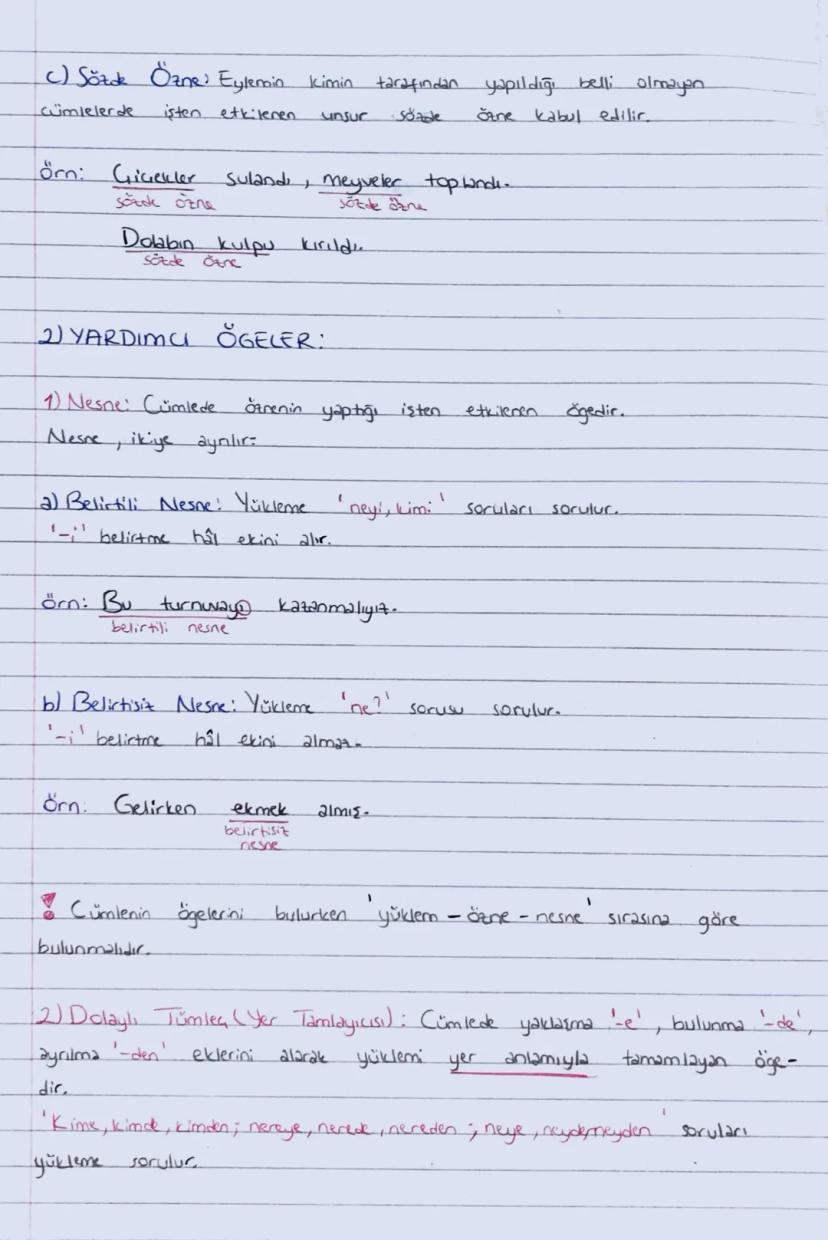 c) Sözde Özne: Eylemin kimin tarafından yapıldığı belli olmayan
cümlelerde işten etkilenen unsur sözde özne kabul edilir.
Örn: Çiçekler sulandı, meyveler toplandı.
sözde özne sözde özne
Dolabın kulpu kırıldı.
sözde özne
2) YARDIMCI ÖGELER:
1) Nesne: Cümlede öznenin yaptığı işten etkilenen ögedir.
Nesne, ikiye ayrılır:
a) Belirtili Nesne: Yükleme 'neyi, kimi' soruları sorulur.
'-i' belirtme hâl ekini alır.
Örn: Bu turnuvayı kazanmalıyız.
belirtili nesne
b) Belirtisiz Nesne: Yükleme 'ne?' sorusu sorulur.
'-i' belirtme hâl ekini almaz.
Örn: Gelirken ekmek almış.
belirtisiz
nesne
! Cümlenin ögelerini bulurken 'yüklem - özne - nesne' sırasına göre
bulunmalıdır.
2) Dolaylı Tümleç (Yer Tamlayıcısı): Cümlede yaklaşma '-e', bulunma '-de',
ayrılma '-den' eklerini alarak yüklemi yer anlamıyla tamamlayan öge-
dir.
'Kime, kimde, kimden; nereye, nerede, nereden; neye, neyde, neyden' soruları
yükleme sorulur.